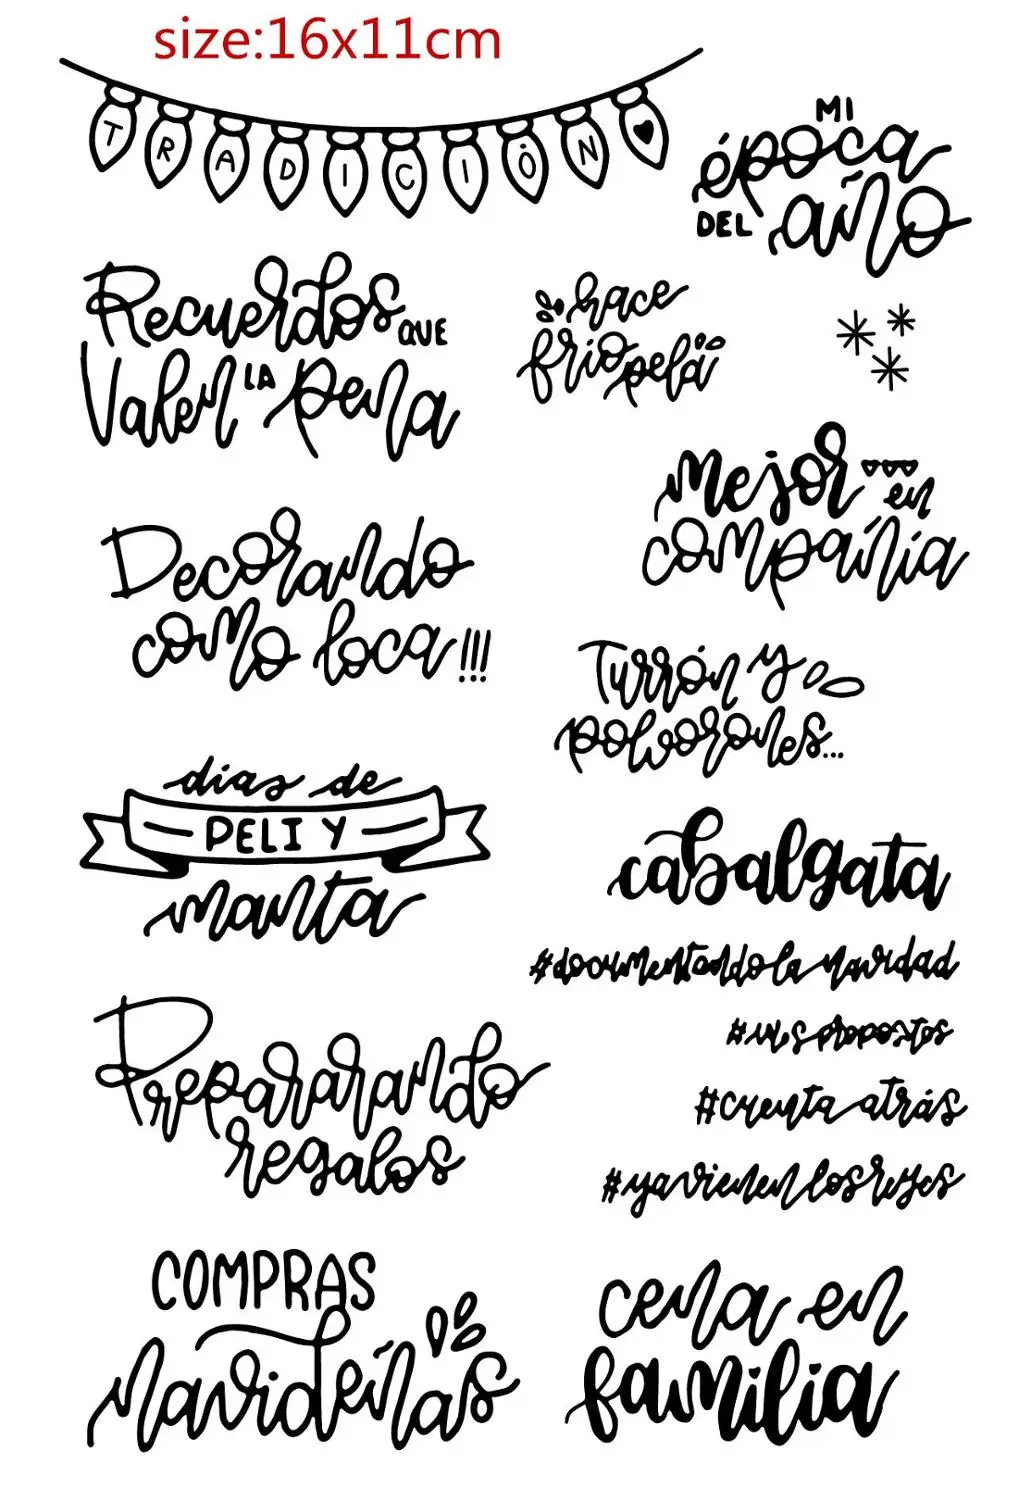 size:16x11cm
TRADICIÓN
MI
época
DEL año
Recuerdos QUE
Valen LA pena
hace
frio pela
mejor en
compañía
Decorando
como loca!!!
Turrón y
polvorones...
dias de
PELI Y
manta
cabalgata
#documentandolanavidad
#cuenta atrás
#yavienenlosreyes
Prepararando
regalos
COMPRAS
navideñas
cena en
familia